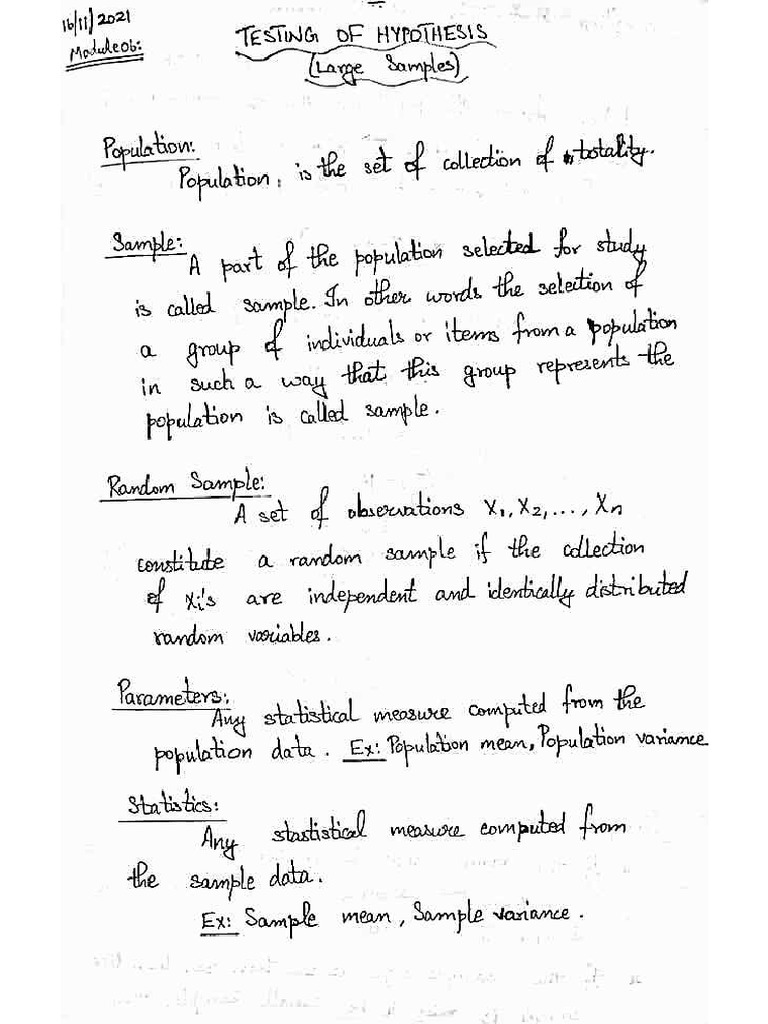 16/11/2021
Module06:
TESTING OF HYPOTHESIS
(Large Samples)
Population:
Population, is the set of collection of totality.
Sample:
A part of the population selected for study
is called sample. In other words the selection of
a group of individuals or items from a population
in such a way that this group represents the
population is called sample.
Random Sample:
A set of observations X1, X2, ..., Xn
constitute a random sample if the collection
of xi's are independent and identically distributed
random variables.
Parameters:
Any statistical measure computed from the
population data. Ex: Population mean, Population variance
Statistics:
Any stastistical measure computed from
the sample data.
Ex: Sample mean, Sample variance.